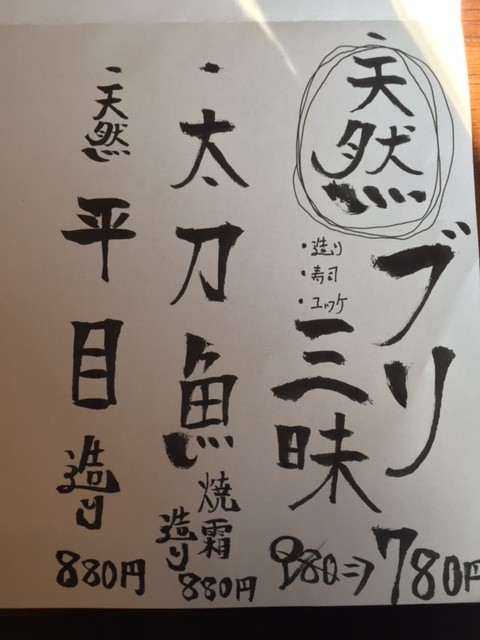 ・天然
ブリ
三昧
・造り
・寿司
・ユッケ
980⇒780円
・太刀魚
焼霜
造り
880円
・天然
平目
造り
880円